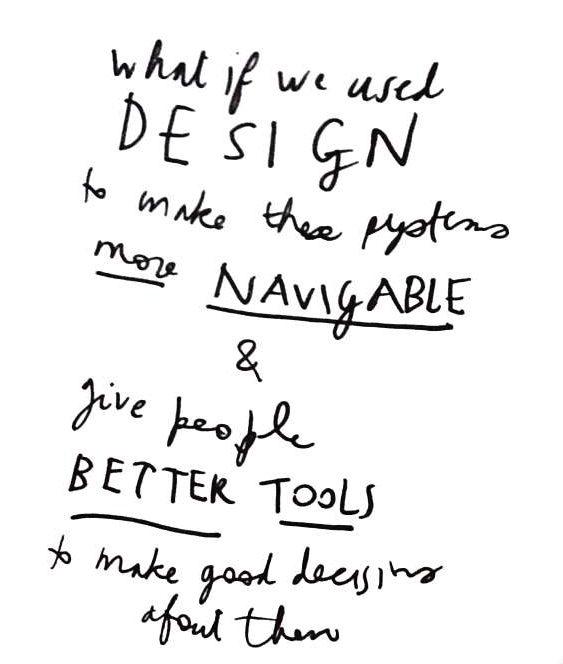 what if we used
DESIGN
to make these systems
more NAVIGABLE
&
give people
BETTER TOOLS
to make good decisions
about them